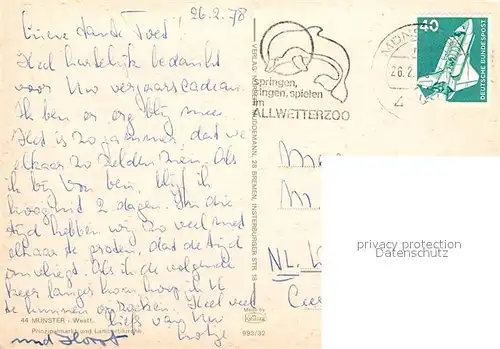 26.2.78
Lieve tante Toet!
Heel hartelijk bedankt
voor Uw verjaarscadeau.
Ik ben er erg blij mee.
Het is zo jammer dat we
elkaar zo zelden zien. Als
ik bij U ben, blijf ik
hooguit 2 dagen. In die
tijd hebben wij zo veel met
elkaar te praten, dat de tijd
omvliegt. Als ik de volgende
keer langer kom, hoop ik U
te kunnen opzoeken. Heel veel
liefs van Uw
und Horst
44 MÜNSTER i. Westf.
Prinzipalmarkt und Lambertikirche
VERLAG 28 BREMEN, INSTERBURGER STR. 18
Made by
KRÜGER
993/32
springen,
singen, spielen
im
ALLWETTERZOO
MÜNS
26.2.
40
DEUTSCHE BUNDESPOST
NL.
privacy protection
Datenschutz